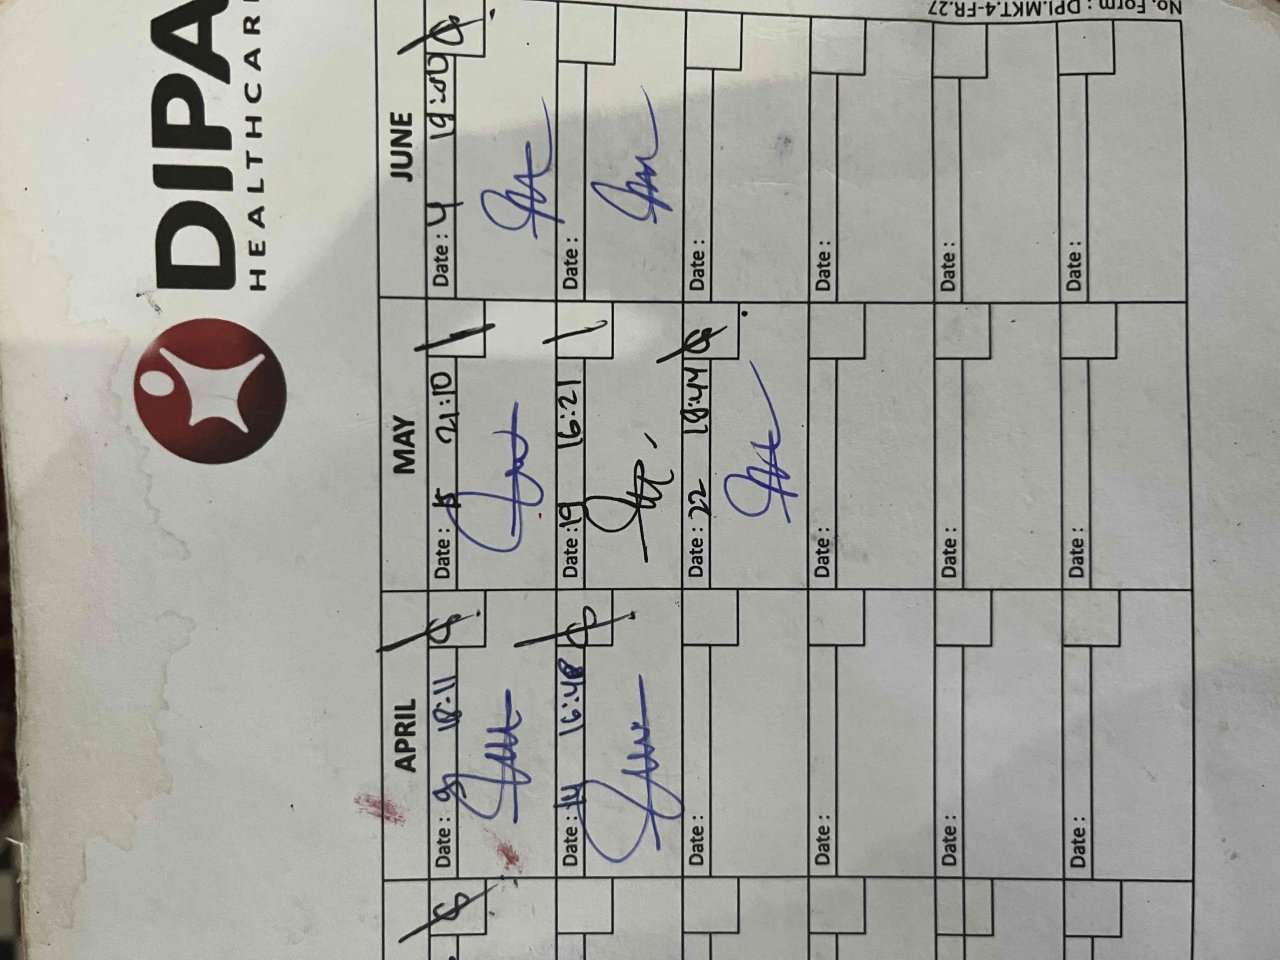 DIPA
HEALTHCAR
APRIL MAY JUNE
Date: 9 18:11 Date: 15 21:10 Date: 4 19:00
Date: 14 16:48 Date: 19 16:21 Date:
Date: Date: 22 18:44 Date:
Date: Date: Date:
Date: Date: Date:
Date: Date: Date:
No. Form : DPI.MKT.4-FR.27